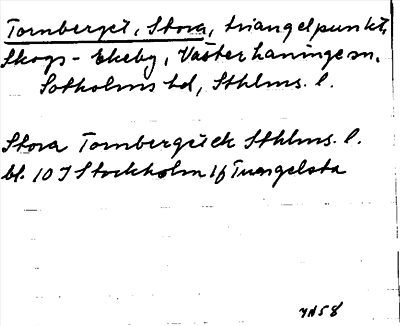 Tornberget, Stora, triangelpunkt,
Skogs-Ekeby, Västerhaninge sn,
Sotholms hd, Sthlms. l.
Stora Tornberget ek Sthlms. l.
bl. 10 I Stockholm 1f Tungelsta
HN58